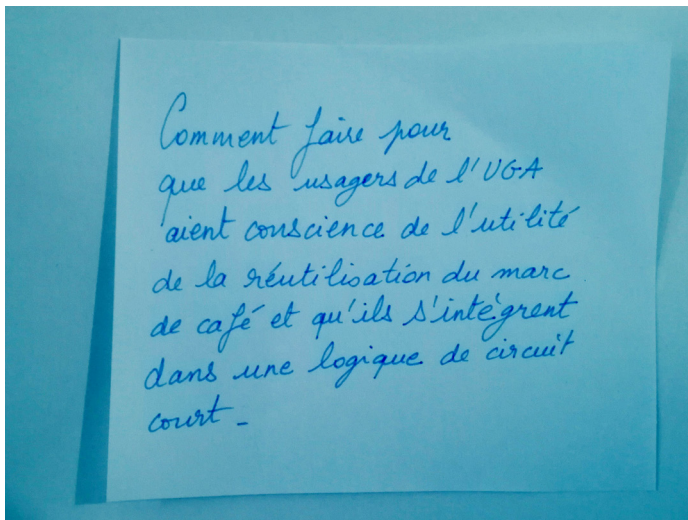 Comment faire pour
que les usagers de l'UGA
aient conscience de l'utilité
de la réutilisation du marc
de café et qu'ils s'intègrent
dans une logique de circuit
court -